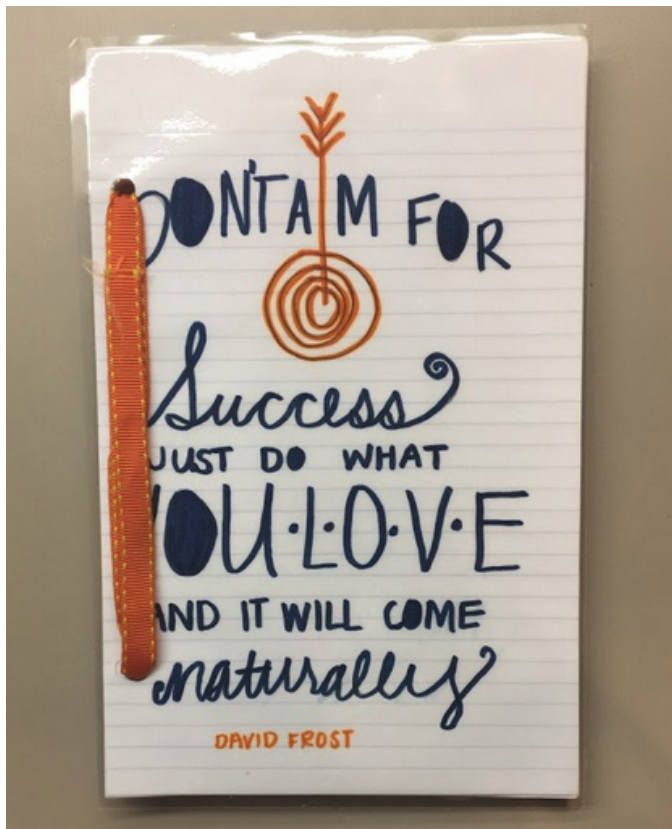 DON'T AIM FOR
Success
JUST DO WHAT
YOU·L·O·V·E
AND IT WILL COME
naturally
DAVID FROST